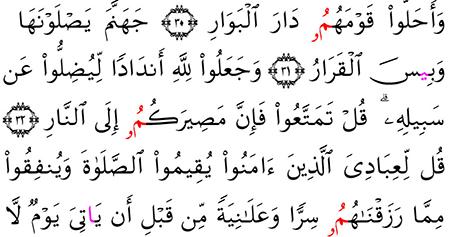 وَأَحَلُّواْ قَوْمَهُمُۥ دَارَ ٱلْبَوَارِ ٣٠ جَهَنَّمَ يَصْلَوْنَهَا
وَبِيسَ ٱلْقَرَارُ ٣١ وَجَعَلُواْ لِلَّهِ أَندَادًا لِّيُضِلُّواْ عَن
سَبِيلِهِۦۗ قُلْ تَمَتَّعُواْ فَإِنَّ مَصِيرَكُمُۥ إِلَى ٱلنَّارِ ٣٢
قُل لِّعِبَادِيَ ٱلَّذِينَ ءَامَنُواْ يُقِيمُواْ ٱلصَّلَوٰةَ وَيُنفِقُواْ
مِمَّا رَزَقْنَٰهُمُۥ سِرًّا وَعَلَانِيَةً مِّن قَبْلِ أَن يَاتِيَ يَوْمٌ لَّا